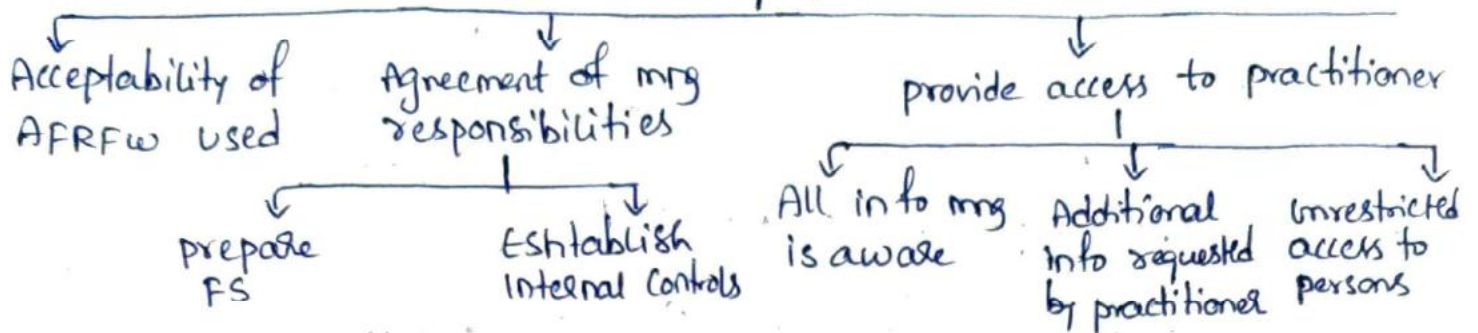 Acceptability of
AFRFw used
Agreement of mrg
responsibilities
prepare
FS
Eshtablish
Internal Controls
provide access to practitioner
All info mrg
is aware
Additional
info requested
by practitioner
Unrestricted
access to
persons